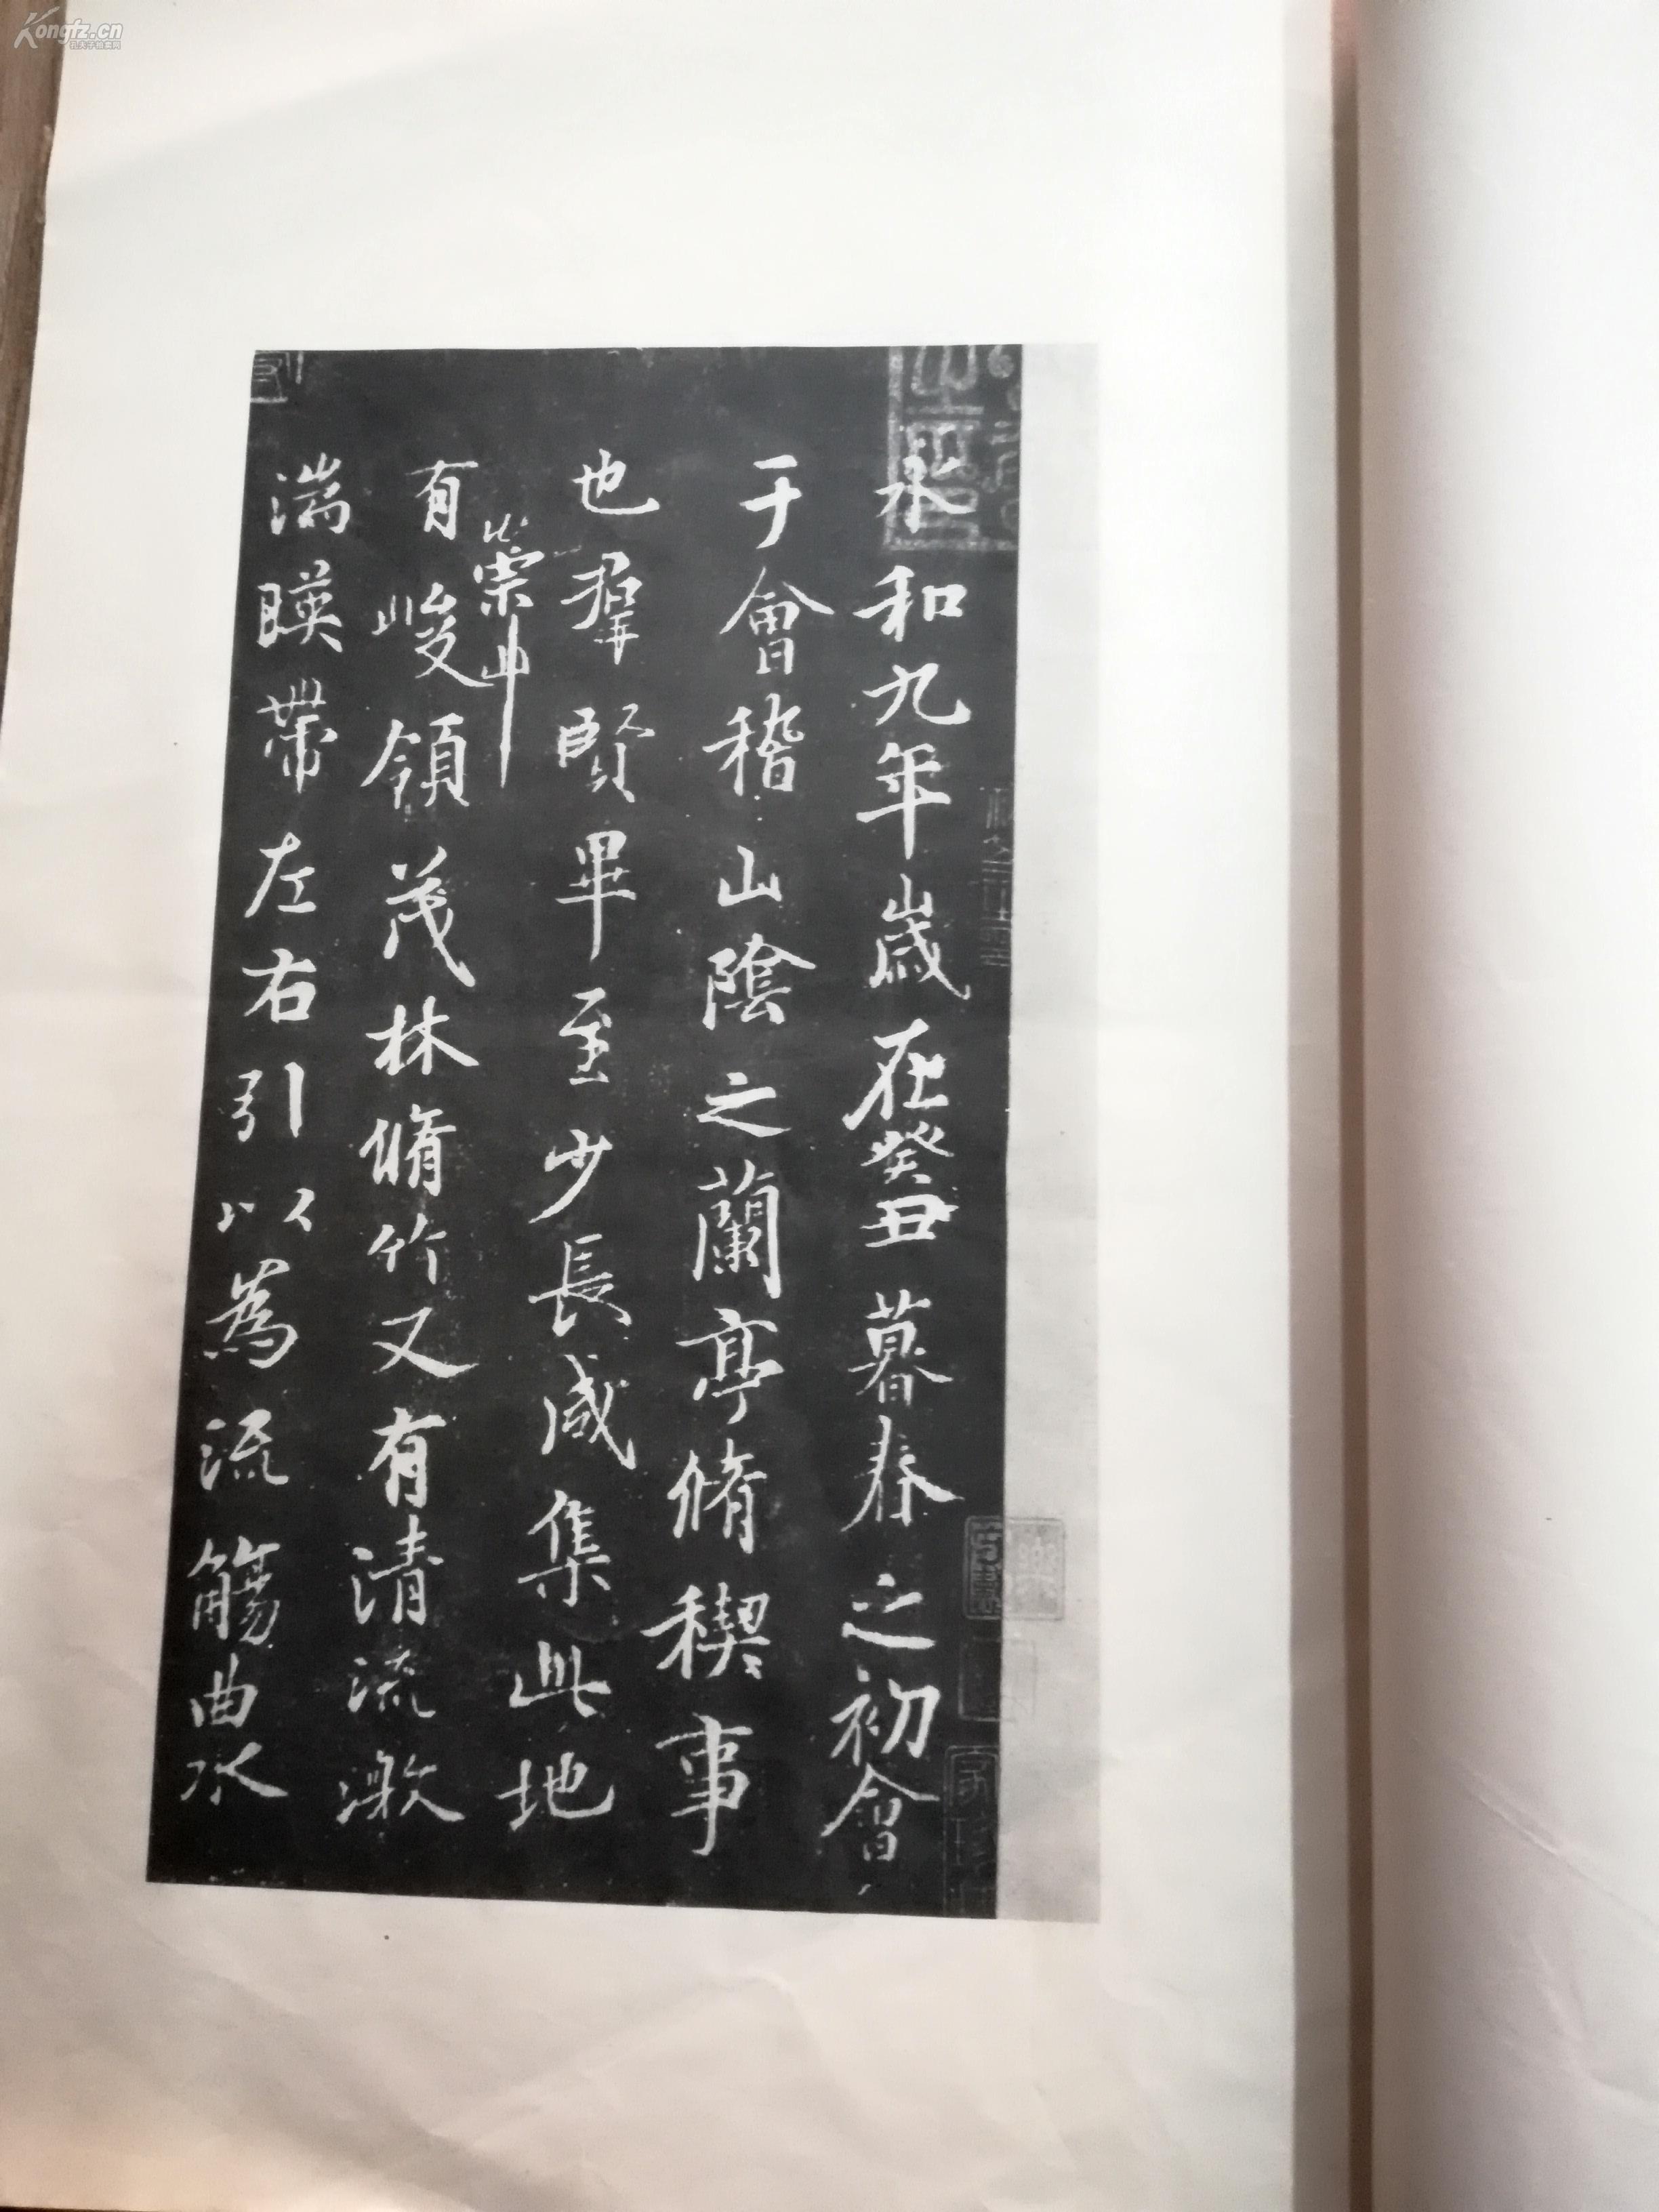 永和九年歲在癸丑暮春之初會
于會稽山陰之蘭亭脩稧事
也羣賢畢至少長咸集此地
崇山
有峻領茂林脩竹又有清流激
湍暎帶左右引以為流觴曲水
Kongfz.cn
孔夫子旧书网